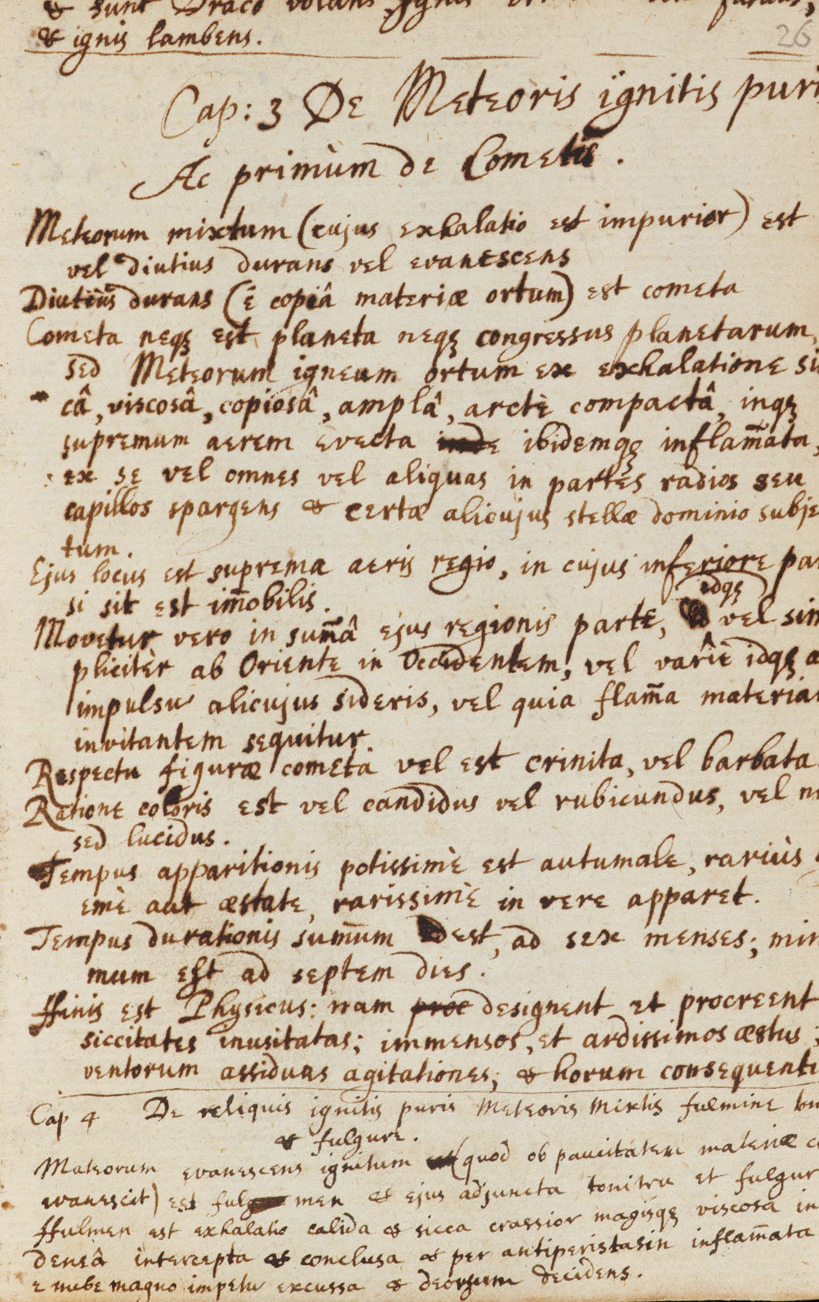 & sunt Draco volans, Ignis
& ignis lambens.
26
Cap: 3 De Meteoris ignitis puri
Ac primùm de Cometis.
Meteorum mixtum (cujus exhalatio est impurior) est
vel diutius durans vel evanescens
Diutiùs durans (è copiâ materiæ ortum) est cometa
Cometa neqꝫ est planeta neqꝫ congressus planetarum,
sed Meteorum igneum ortum ex exhalatione si
câ, viscosâ, copiosâ, amplâ, arctè compactâ, inqꝫ
supremum aerem evecta ibidemqꝫ inflam̄ata,
ex se vel omnes vel aliquas in partes radios seu
capillos spargens & certæ alicujus stellæ dominio subje
tum.
Ejus locus est suprema aeris regio, in cujus inferiore par
si sit est im̄obilis.
Movetur vero in sum̄â ejus regionis parte, idqꝫ vel sim
plicitèr ab Oriente in Occidentem, vel variè idqꝫ a
impulsu alicujus sideris, vel quia flam̄a materiam
invitantem sequitur.
Respectu figuræ cometa vel est crinita, vel barbata
Ratione coloris est vel candidus vel rubicundus, vel n
sed lucidus.
Tempus apparitionis potissimè est autumale, rariùs
emè aut æstate, rarissimè in vere apparet.
Tempus durationis sum̄um est, ad sex menses; min
mum est ad septem dies.
ffinis est Physicus: nam designent et procreent
siccitates inusitatas; immensos, et ardissimos æstus;
ventorum assiduas agitationes; & horum consequenti
Cap 4 De reliquis ignitis puris Meteoris Mixtis fulmine
& fulgure.
Mateorum evanescens ignitum (quod ob paucitatem materiæ c
evanescit) est fulmen & ejus adjuncta tonitru et fulgur
ffulmen est exhalatio calida & sicca crassior magisqꝫ viscosa in
densâ intercepta & conclusa & per antiperistasin inflam̄ata
e nube magno impetu excussa & deorsum decidens.